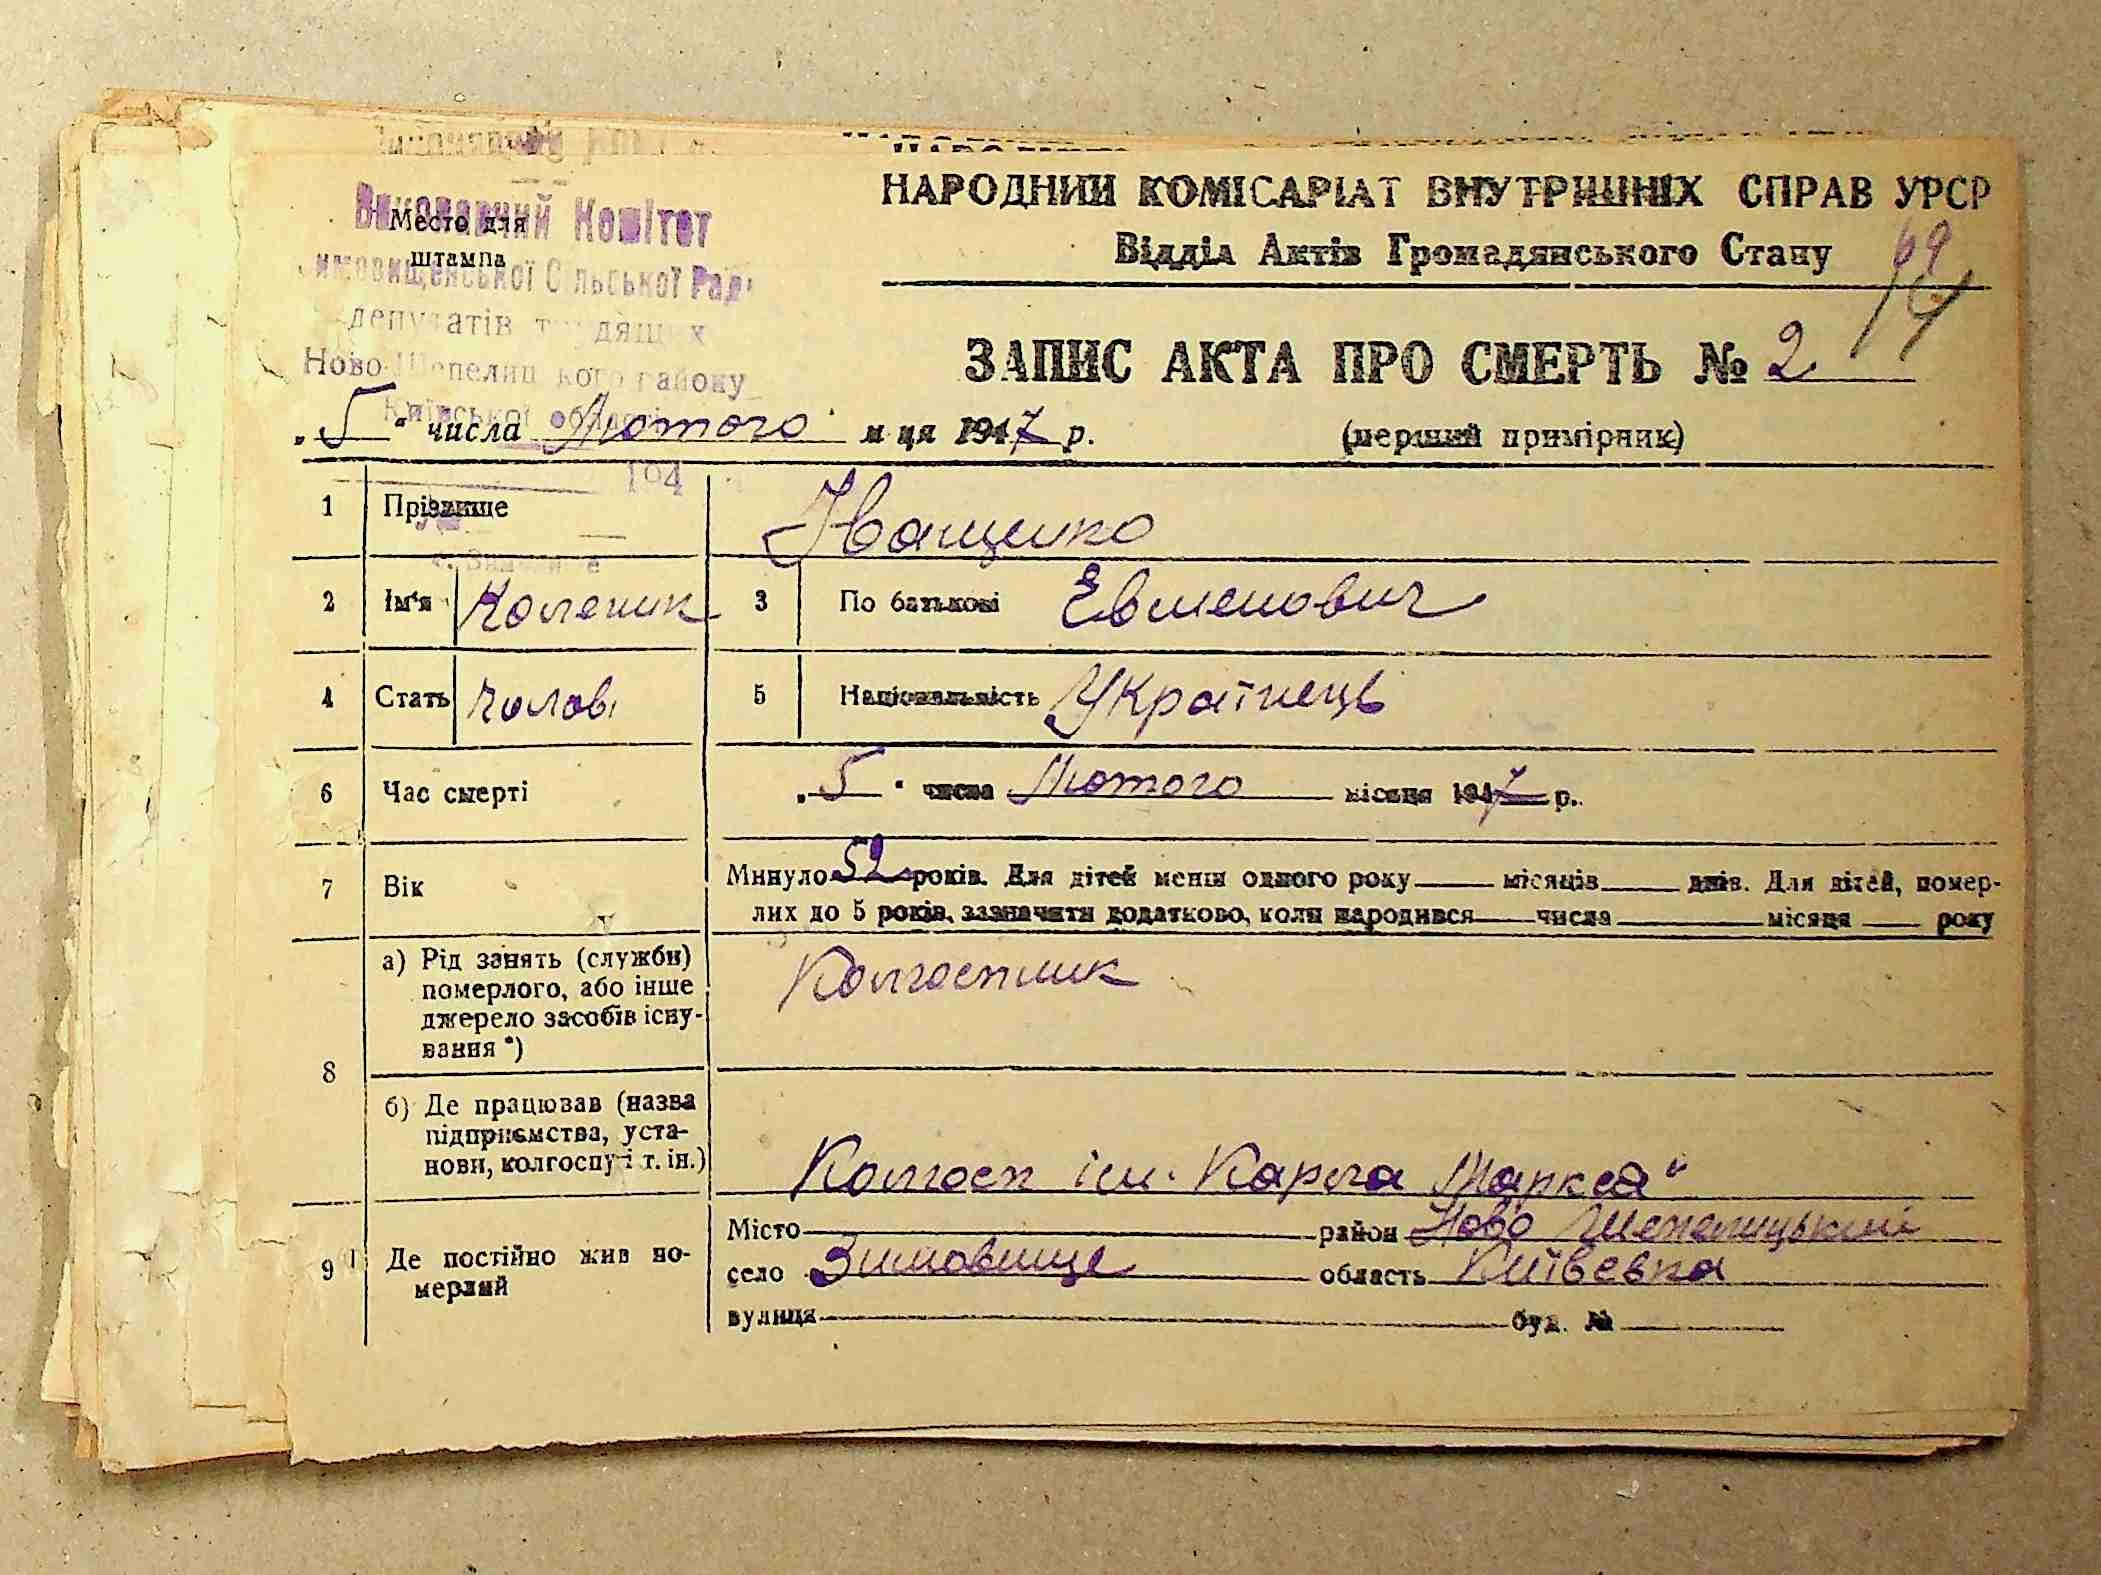 Виконавчий Комітет
Место для
штампа
имовищенської Сільської Рад
депутатів трудящих
Ново-Шепелицького району
Київської області
194
НАРОДНИЙ КОМІСАРІАТ ВНУТРІШНІХ СПРАВ УРСР
Відділ Актів Громадянського Стану
ЗАПИС АКТА ПРО СМЕРТЬ № 2
„5“ числа Лютого м ця 1947 р.
(перший примірник)
1 Прізвище Іващенко
2 Ім'я Коленик 3 По батькові Евменович
4 Стать Чолові 5 Національність Українець
6 Час смерті „5“ числа Лютого місяця 1947 р.
7 Вік Минуло 52 років. Для дітей менш одного року місяців днів. Для дітей, помер-
лих до 5 років, зазначити додатково, коли народився числа місяця року
8 а) Рід занять (служби)
померлого, або інше
джерело засобів існу-
вання *)
Колгоспник
б) Де працював (назва
підприємства, уста-
нови, колгоспу і т. ін.)
Колгосп ім. Карла Маркса"
9 Де постійно жив по-
мерлий
Місто район Ново Шепелицький
село Зимовище область Київська
вулиця буд. №